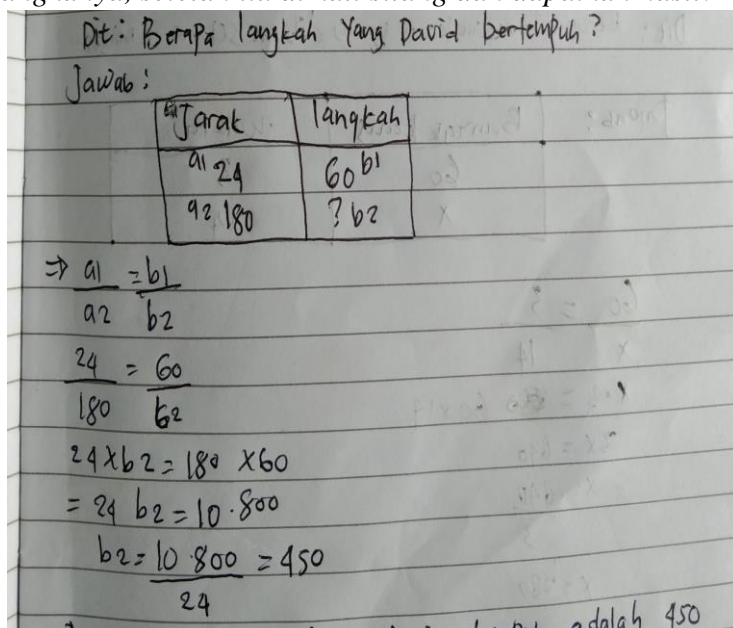 Dit: Berapa langkah Yang David bertempuh?
Jawab:
Jarak langkah
a1 24 60 b1
a2 180 ? b2
⇒ a1/a2 = b1/b2
24/180 = 60/b2
24 x b2 = 180 x 60
= 24 b2 = 10.800
b2 = 10.800/24 = 450
adalah 450